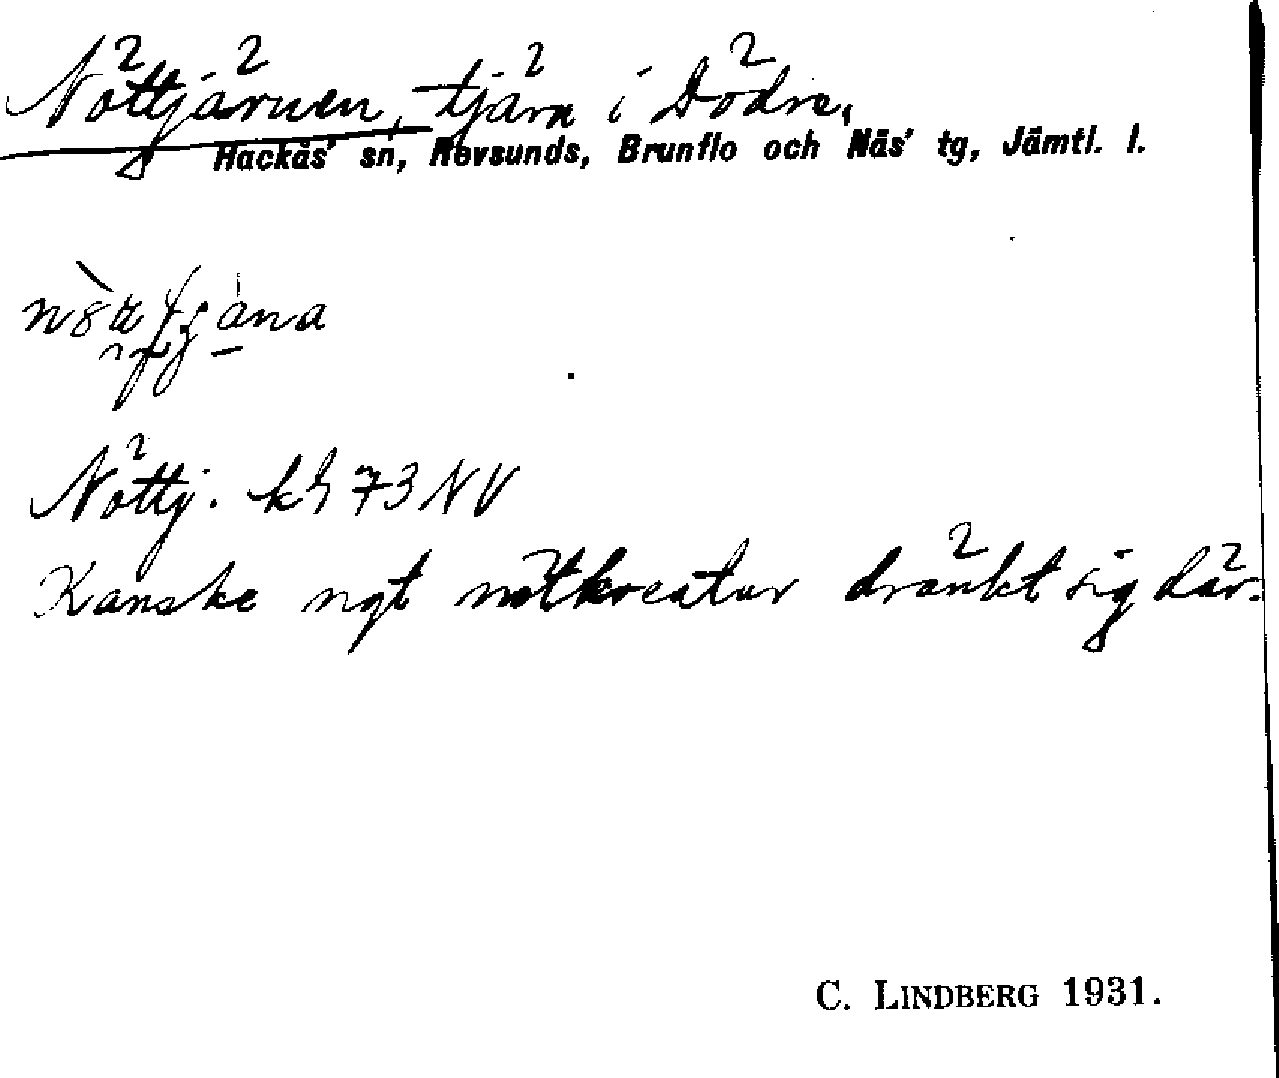 Nöttjärnen, tjärn i Dödre,
Hackås' sn, Revsunds, Brunflo och Näs' tg, Jämtl. l.
Nöttj. kh 73 NV
Kanske ngt nötkreatur dränkt sig där.
C. LINDBERG 1931.